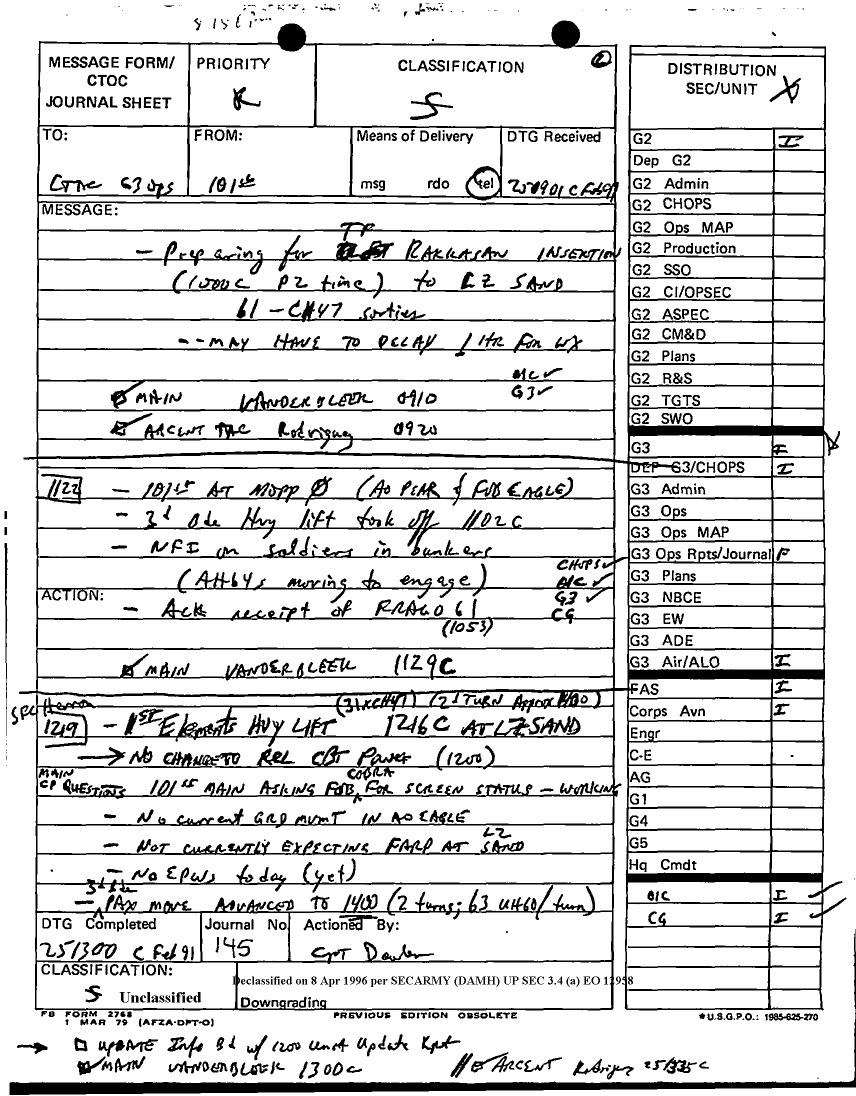 MESSAGE FORM/
CTOC
JOURNAL SHEET
PRIORITY
R
CLASSIFICATION
S
2
TO:
CTOC G3 Ops
FROM:
101st
Means of Delivery
msg rdo tel
DTG Received
250901 C Feb 91
MESSAGE:
TF
- Preparing for RAKKASAN INSERTION
(1000C PZ time) to LZ SAND
61 - CH47 sorties
-- MAY HAVE TO DELAY 1 HR FOR WX
OIC ✓
G3 ✓
MAIN VANDERBLEEK 0910
ARCENT TAC Rodriguez 0920
1122 - 101st AT MOPP Ø (AO PEAR & FOB EAGLE)
- 3d Bde Hvy lift took off 1102C
- NFI on soldiers in bunkers
CHOPS ✓
(AH64s moving to engage)
OIC ✓
G3 ✓
CG
ACTION:
- Ack receipt of FRAGO 61
(1053)
MAIN VANDERBLEEK 1129C
SFC Herron
(31 x CH47) (2d TURN Approx 1400)
1219 - 1ST Elements HVY LIFT 1216C AT LZ SAND
→ NO CHANGE TO REL CBT Power (1200)
MAIN
CP QUESTIONS 101st MAIN ASKING FOB COBRA FOR SCREEN STATUS - WORKING
- No current GRD MVMT IN AO EAGLE
- NOT CURRENTLY EXPECTING FARP AT LZ SAND
- No EPWs today (yet)
- 3d Bde PAX MOVE ADVANCED TO 1400 (2 turns; 63 UH60/turn)
DTG Completed
251300 C Feb 91
Journal No
145
Actioned By:
CPT
CLASSIFICATION:
S Unclassified
Declassified on 8 Apr 1996 per SECARMY (DAMH) UP SEC 3.4 (a) EO 12958
Downgrading
FB FORM 2768
1 MAR 79 (AFZA-DPT-O)
PREVIOUS EDITION OBSOLETE
*U.S.G.P.O.: 1985-625-270
→ UPDATE Info Bd w/ 1200 Unit Update Rpt
MAIN VANDERBLEEK 1300C
ARCENT Rodriguez 251335C
DISTRIBUTION
SEC/UNIT
G2 I
Dep G2
G2 Admin
G2 CHOPS
G2 Ops MAP
G2 Production
G2 SSO
G2 CI/OPSEC
G2 ASPEC
G2 CM&D
G2 Plans
G2 R&S
G2 TGTS
G2 SWO
G3 I
DEP G3/CHOPS I
G3 Admin
G3 Ops
G3 Ops MAP
G3 Ops Rpts/Journal F
G3 Plans
G3 NBCE
G3 EW
G3 ADE
G3 Air/ALO I
FAS I
Corps Avn I
Engr
C-E
AG
G1
G4
G5
Hq Cmdt
OIC I ✓
CG I ✓